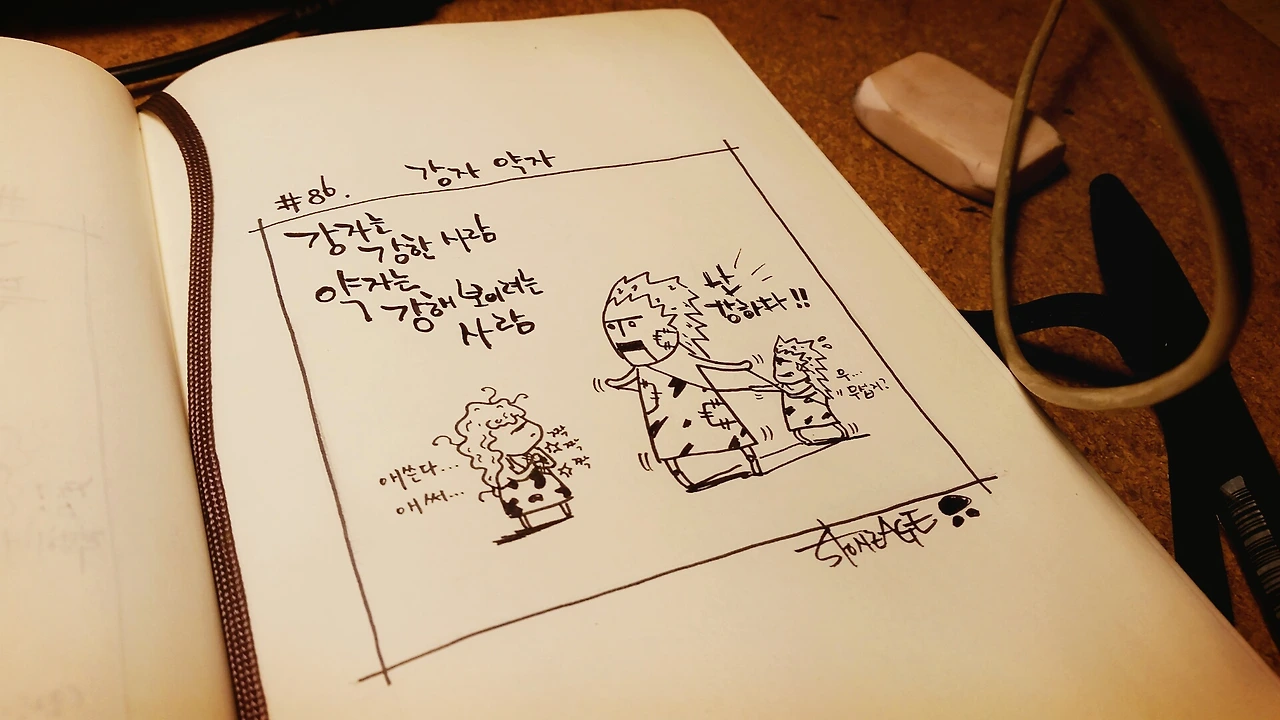 #86. 강자 약자
강자는
강한 사람
약자는
강해 보이려는
사람
난
강하다!!
우...
무겁지?
애쓴다...
애써...
짝
짝
짝
STONEAGE